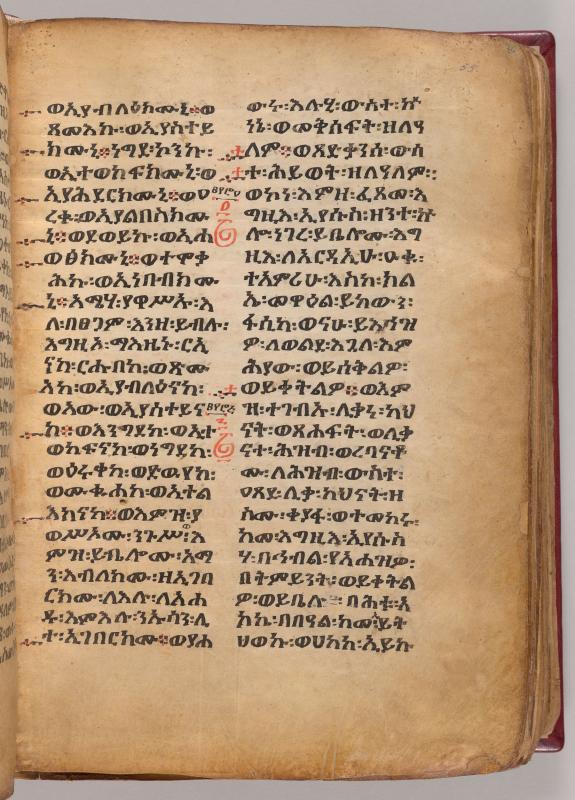 ወኢያብላዕክሙኒ፡ወ
ጸመእኩ፡ወኢያስተይ
ክሙኒ፡ነግደ፡ኮንኩ፡
ወኢተወከፍክሙኒ፡ወ
ኢያሕደርክሙኒ፡ወዕ
ረቁ፡ወኢያልበስክሙ
ኒ፡ወደወይኩ፡ወኢሐ
ወፅክሙኒ፡ወተሞቃ
ሕኩ፡ወኢነበብክሙ
ኒ፡አሜሃ፡ያዋሥኡ፡እ
ለ፡በፀጋም፡እንዘ፡ይብሉ፡
እግዚኦ፡ማእዜኑ፡ርኢ
ናከ፡ርሑበከ፡ወጽሙ
አከ፡ወኢያብላዕናከ፡
ወአው፡ወኢያስተይና
ከ፡ወእንግደከ፡ወኢተ
ወከፍናከ፡ወነግደከ፡
ወዕሩቀከ፡ወድዉየከ፡
ወሙቁሐከ፡ወኢተል
እከናከ፡ወእምዝ፡ያ
ወሥኦሙ፡ንጉሥ፡እ
ምዝ፡ይቤሎሙ፡አማ
ን፡እብለክሙ፡ዘኢገበ
ርክሙ፡ለእሉ፡ለአሐ
ዱ፡እምእሉ፡ንኡሳን፡ሊ
ተ፡ኢገበርክሙ፡ወያሐ
ውሩ፡እሉሂ፡ውስተ፡ኵ
ነኔ፡ወመቅሰፍት፡ዘለዓ
ለም፡ወጻድቃንሰ፡ውስ
ተ፡ሕይወት፡ዘለዓለም፡
ወኮነ፡እምዝ፡ፈጸመ፡እ
ግዚእ፡ኢየሱስ፡ዘንተ፡ኵ
ሎ፡ነገረ፡ይቤሎሙ፡እግ
ዚእ፡ለአርዳኢሁ፡ዑቁ፡
ተአምሬሁ፡እስከ፡ክል
ኤ፡መዋዕል፡ይከውን፡
ፋሲካ፡ወናሁ፡ይእኅዝ
ዎ፡ለወልደ፡እጓለ፡እም
ሕያው፡ወይሰቅልዎ፡
ወይቀትልዎ፡ወእም
ዝ፡ተጋብኡ፡ሊቃነ፡ካህ
ናት፡ወጸሐፍት፡ወሊቃ
ናተ፡ሕዝብ፡ወረባናቶ
ሙ፡ለሕዝብ፡ውስተ፡
ዓጸደ፡ሊቀ፡ካህናት፡ዘ
ስሙ፡ቀያፋ፡ወተመከሩ፡
ከመ፡እግዚእ፡ኢየሱስ
ሃ፡በኅብል፡የአሐዝዎ፡
በትምይንት፡ወይቀትል
ዎ፡ወይቤሉ፡በሕቱ፡አ
ኮኬ፡በበዓል፡ከመ፡ይት
ሀወኩ፡ወሀከከ፡ኢይኩ